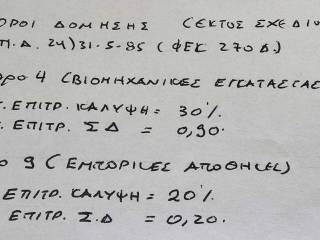 ΟΡΟΙ ΔΟΜΗΣΗΣ (ΕΚΤΟΣ ΣΧΕΔΙΟ
Π.Δ. 24/31-5-85 (ΦΕΚ 270Δ.)
ΡΟ 4 (ΒΙΟΜΗΧΑΝΙΚΕΣ ΕΓΚΑΤΑΣΤΑΣΕ
. ΕΠΙΤΡ. ΚΑΛΥΨΗ = 30%
. ΕΠΙΤΡ. ΣΔ = 0,90.
Ο 9 (ΕΜΠΟΡΙΚΕΣ ΑΠΟΘΗΚΕΣ)
ΕΠΙΤΡ. ΚΑΛΥΨΗ = 20%
ΕΠΙΤΡ. Σ.Δ = 0,20.